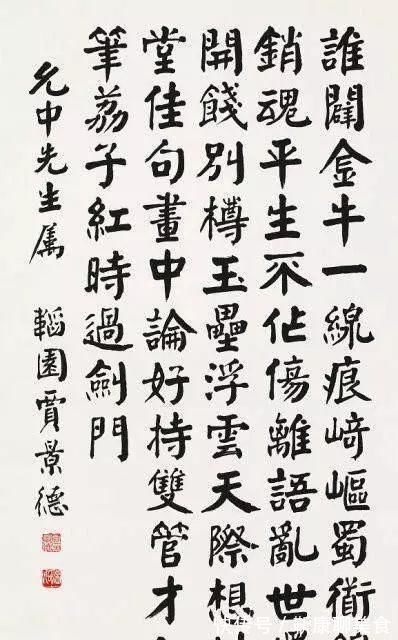 誰闢金牛一線痕崎嶇蜀衜
銷魂平生不作傷離語亂世
開餞別樽玉壘浮雲天際
堂佳句畫中論好持雙管才
筆荔子紅時過劍門
允中先生属 韜園賈景德